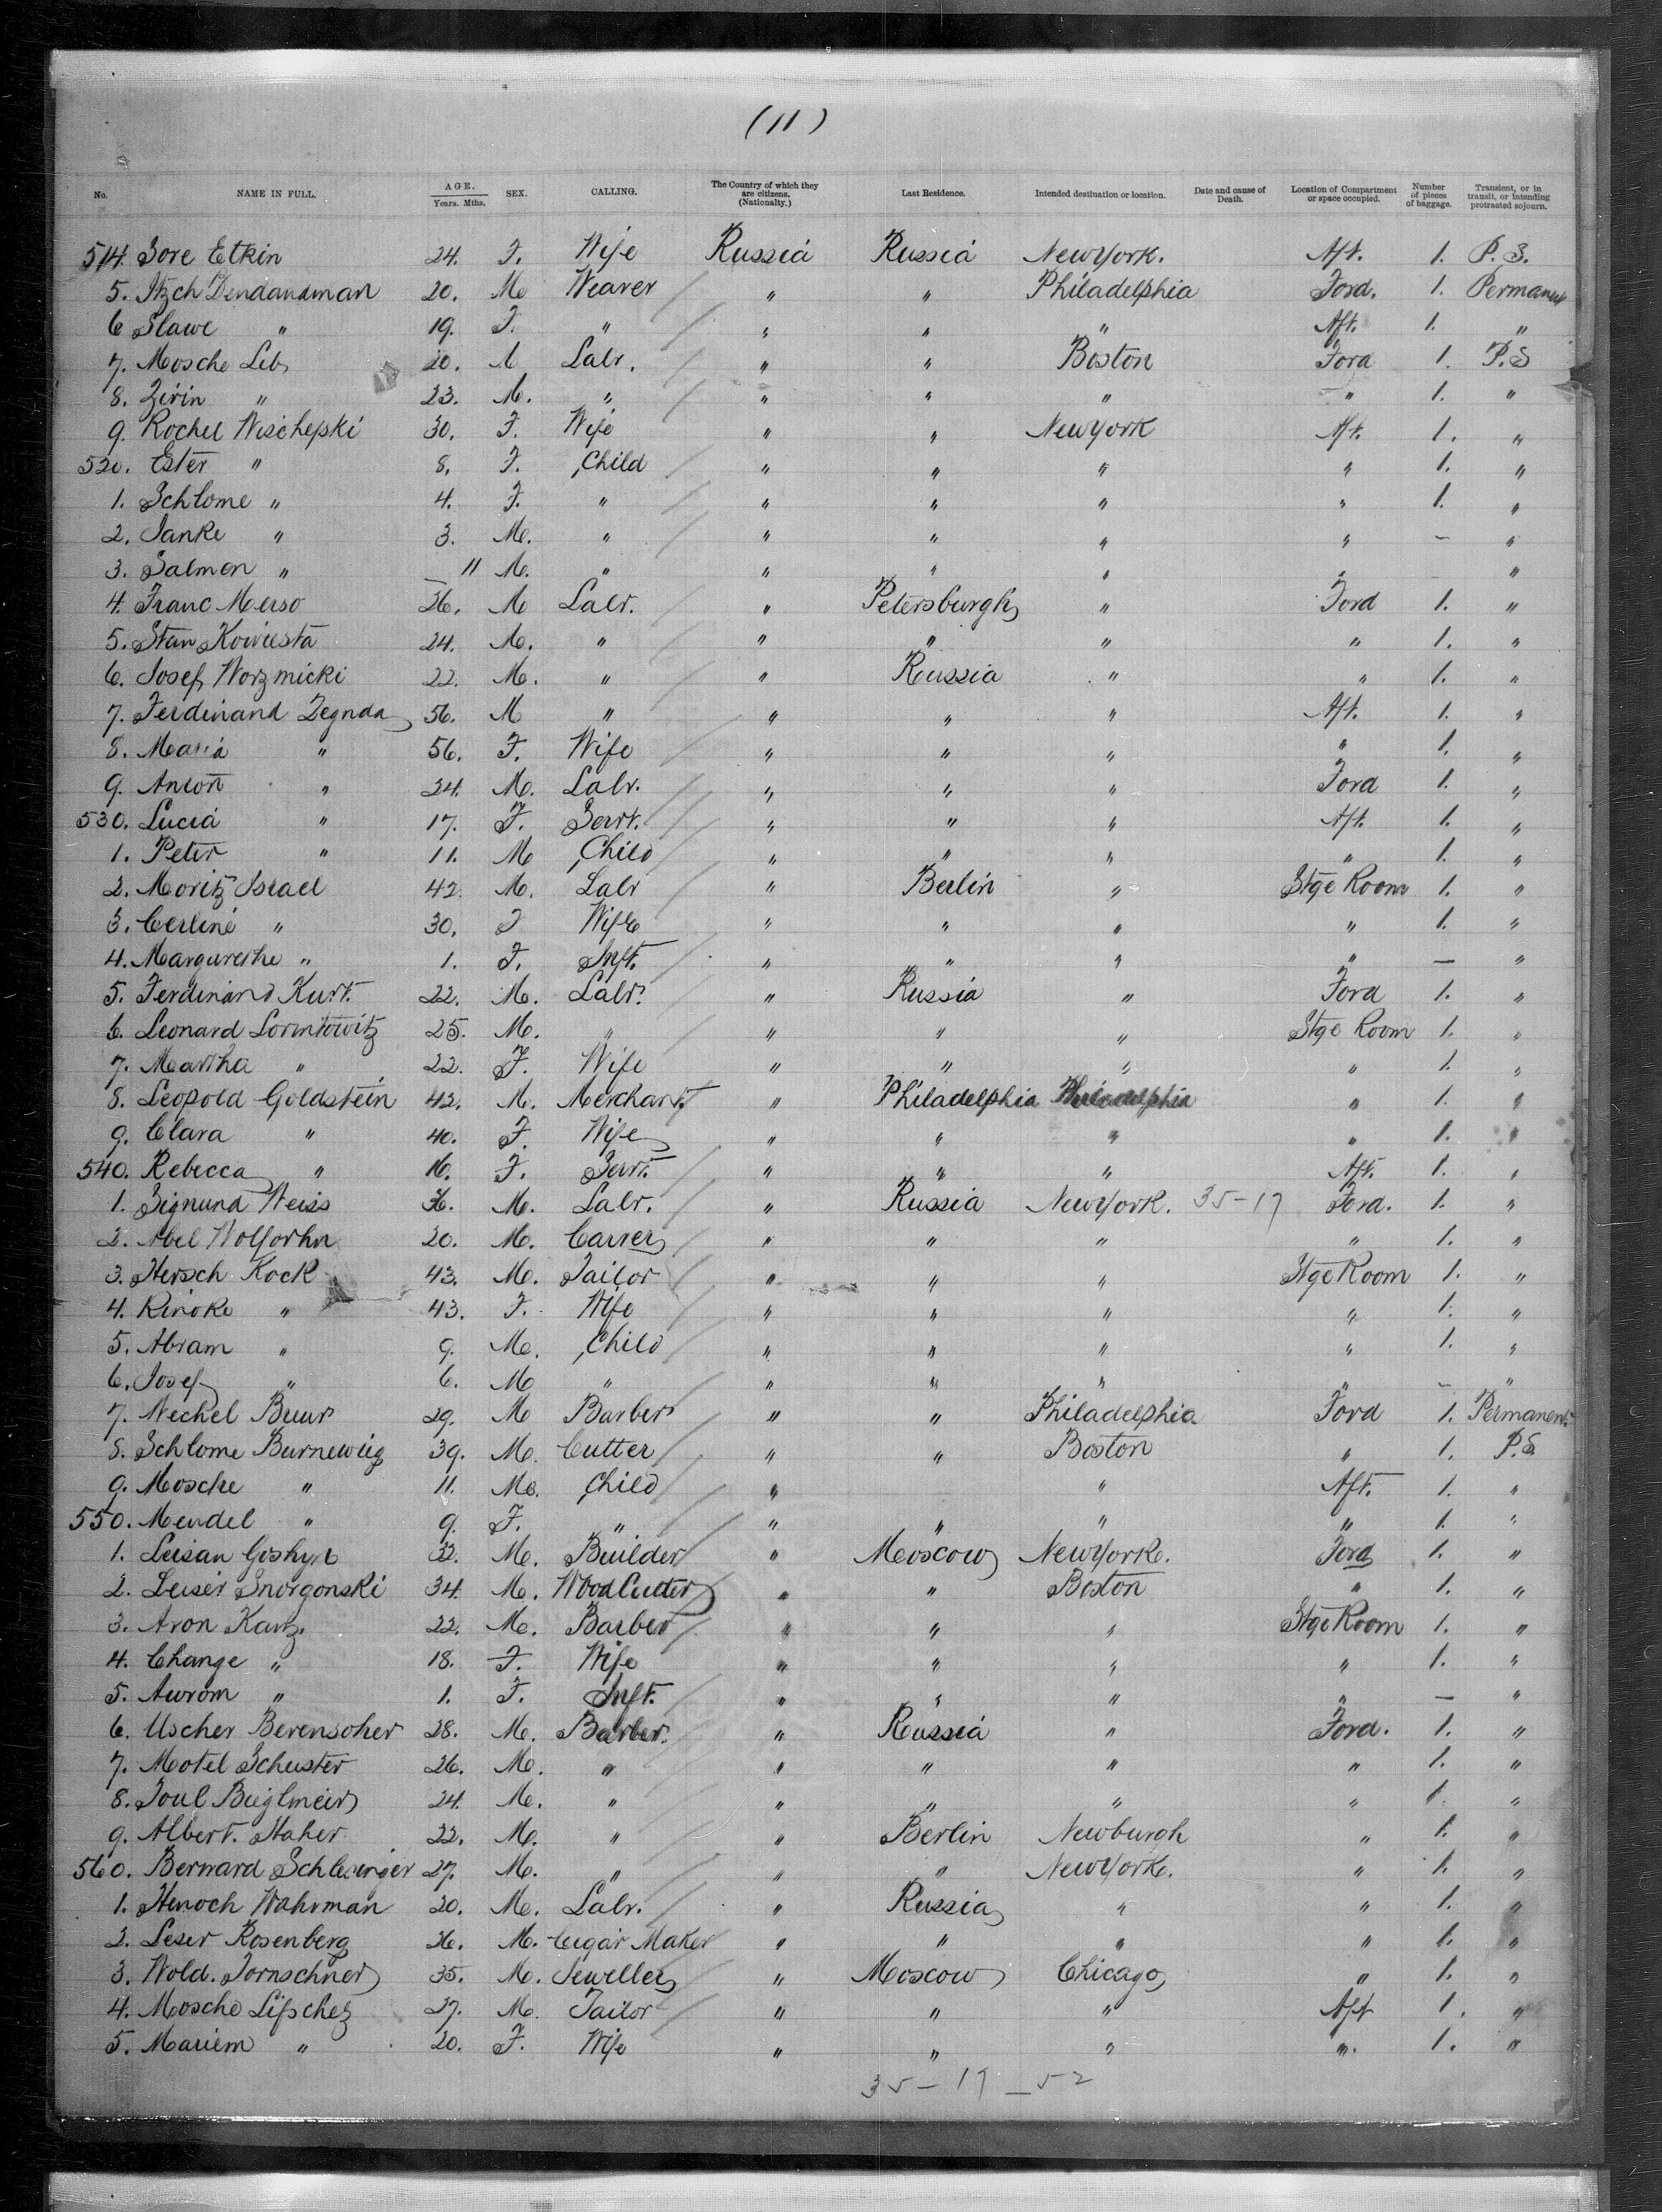 (11)
No. NAME IN FULL. AGE. Years. Mths. SEX. CALLING. The Country of which they are citizens. (Nationalty.) Last Residence. Intended destination or location. Date and cause of Death. Location of Compartment or space occupied. Number of pieces of baggage. Transient, or in transit, or intending protracted sojourn.
514. Sore Etkin 24. F. Wife Russia Russia New York. Aft. 1. P. S.
5. Itzch Dendandman 20. M. Weaver " " Philadelphia Ford. 1. Permanent
6 Slawe " 19. F. " " " " Aft. 1. "
7. Mosche Leb 20. M Labr. " " Boston Ford 1. P. S
8. Zirin " 23. M. " " " " " 1. "
9. Rochel Wischefski 30. F. Wife " " New York Aft. 1. "
520. Ester " 8. F. Child " " " " 1. "
1. Schlome " 4. F. " " " " " 1. "
2. Janke " 3. M. " " " " " - "
3. Salmon " 11 M. " " " " " - "
4. Franc Merso 26. M Labr. " Petersburgh " Ford 1. "
5. Stan Kowiesta 24. M. " " " " " 1. "
6. Josef Worzmicki 22. M. " " Russia " " 1. "
7. Ferdinand Zegnda 56. M " " " " Aft. 1. "
8. Maria " 56. F. Wife " " " " 1. "
9. Anton " 24. M. Labr. " " " Ford 1. "
530. Lucia " 17. F. Servt. " " " Aft. 1. "
1. Peter " 11. M Child " " " " 1. "
2. Moritz Israel 42. M. Labr " Berlin " Stge Room 1. "
3. Cerline " 30. F Wife " " " " 1. "
4. Margurethe " 1. F. Inft. " " " " — "
5. Ferdinand Kurt. 22. M. Labr. " Russia " Ford 1. "
6. Leonard Lormtowitz 25. M. " " " " Stge Room 1. "
7. Martha " 22. F. Wife " " " " 1. "
8. Leopold Goldstein 42. M. Merchant " Philadelphia Philadelphia " 1. "
9. Clara " 40. F. Wife " " " " 1. "
540. Rebecca " 16. F. Servt. " " " Aft. 1. "
1. Sigmund Weiss 36. M. Labr. " Russia New York. 35-17 Ford. 1. "
2. Abel Wolforhn 20. M. Carver " " " " 1. "
3. Hersch Kock 43. M. Tailor " " " Stge Room 1. "
4. Rinoke " 43. F. Wife " " " " 1. "
5. Abram " 9. M. Child " " " " 1. "
6. Josef " 6. M " " " " " - "
7. Nechel Buur 29. M Barber " " Philadelphia Ford 1. Permanent
8. Schlome Burnewig 39. M. Cutter " " Boston " 1. P. S.
9. Mosche " 11. M. Child " " Aft. 1. "
550. Mendel " 9. F. " " " " " 1. "
1. Leisan Goshyn 32. M. Builder " Moscow New York. Ford 1. "
2. Leiser Snorgonski 34. M. Wood Cutter " " Boston " 1. "
3. Aron Kanz. 22. M. Barber " " " Stge Room 1. "
4. Change " 18. F. Wife " " " " 1. "
5. Awrom " 1. F. Inft. " " " " — "
6. Uscher Berensoher 28. M. Barber. " Russia " Ford. 1. "
7. Motel Schuster 26. M. " " " " " 1. "
8. Joul Buglmeir 24. M. " " " " " 1. "
9. Albert. Haher 22. M. " " Berlin Newburgh " 1. "
560. Bernard Schlesinger 27. M. " " " New York. " 1. "
1. Henoch Wahrman 20. M. Labr. " Russia " " 1. "
2. Leser Rosenberg 26. M. Cigar Maker " " " " 1. "
3. Wold. Tornschner 35. M. Jeweller " Moscow Chicago " 1. "
4. Mosche Lifschez 27. M. Tailor " " " Aft 1. "
5. Mariem " 20. F. Wife " " " " 1. "
35-17-52